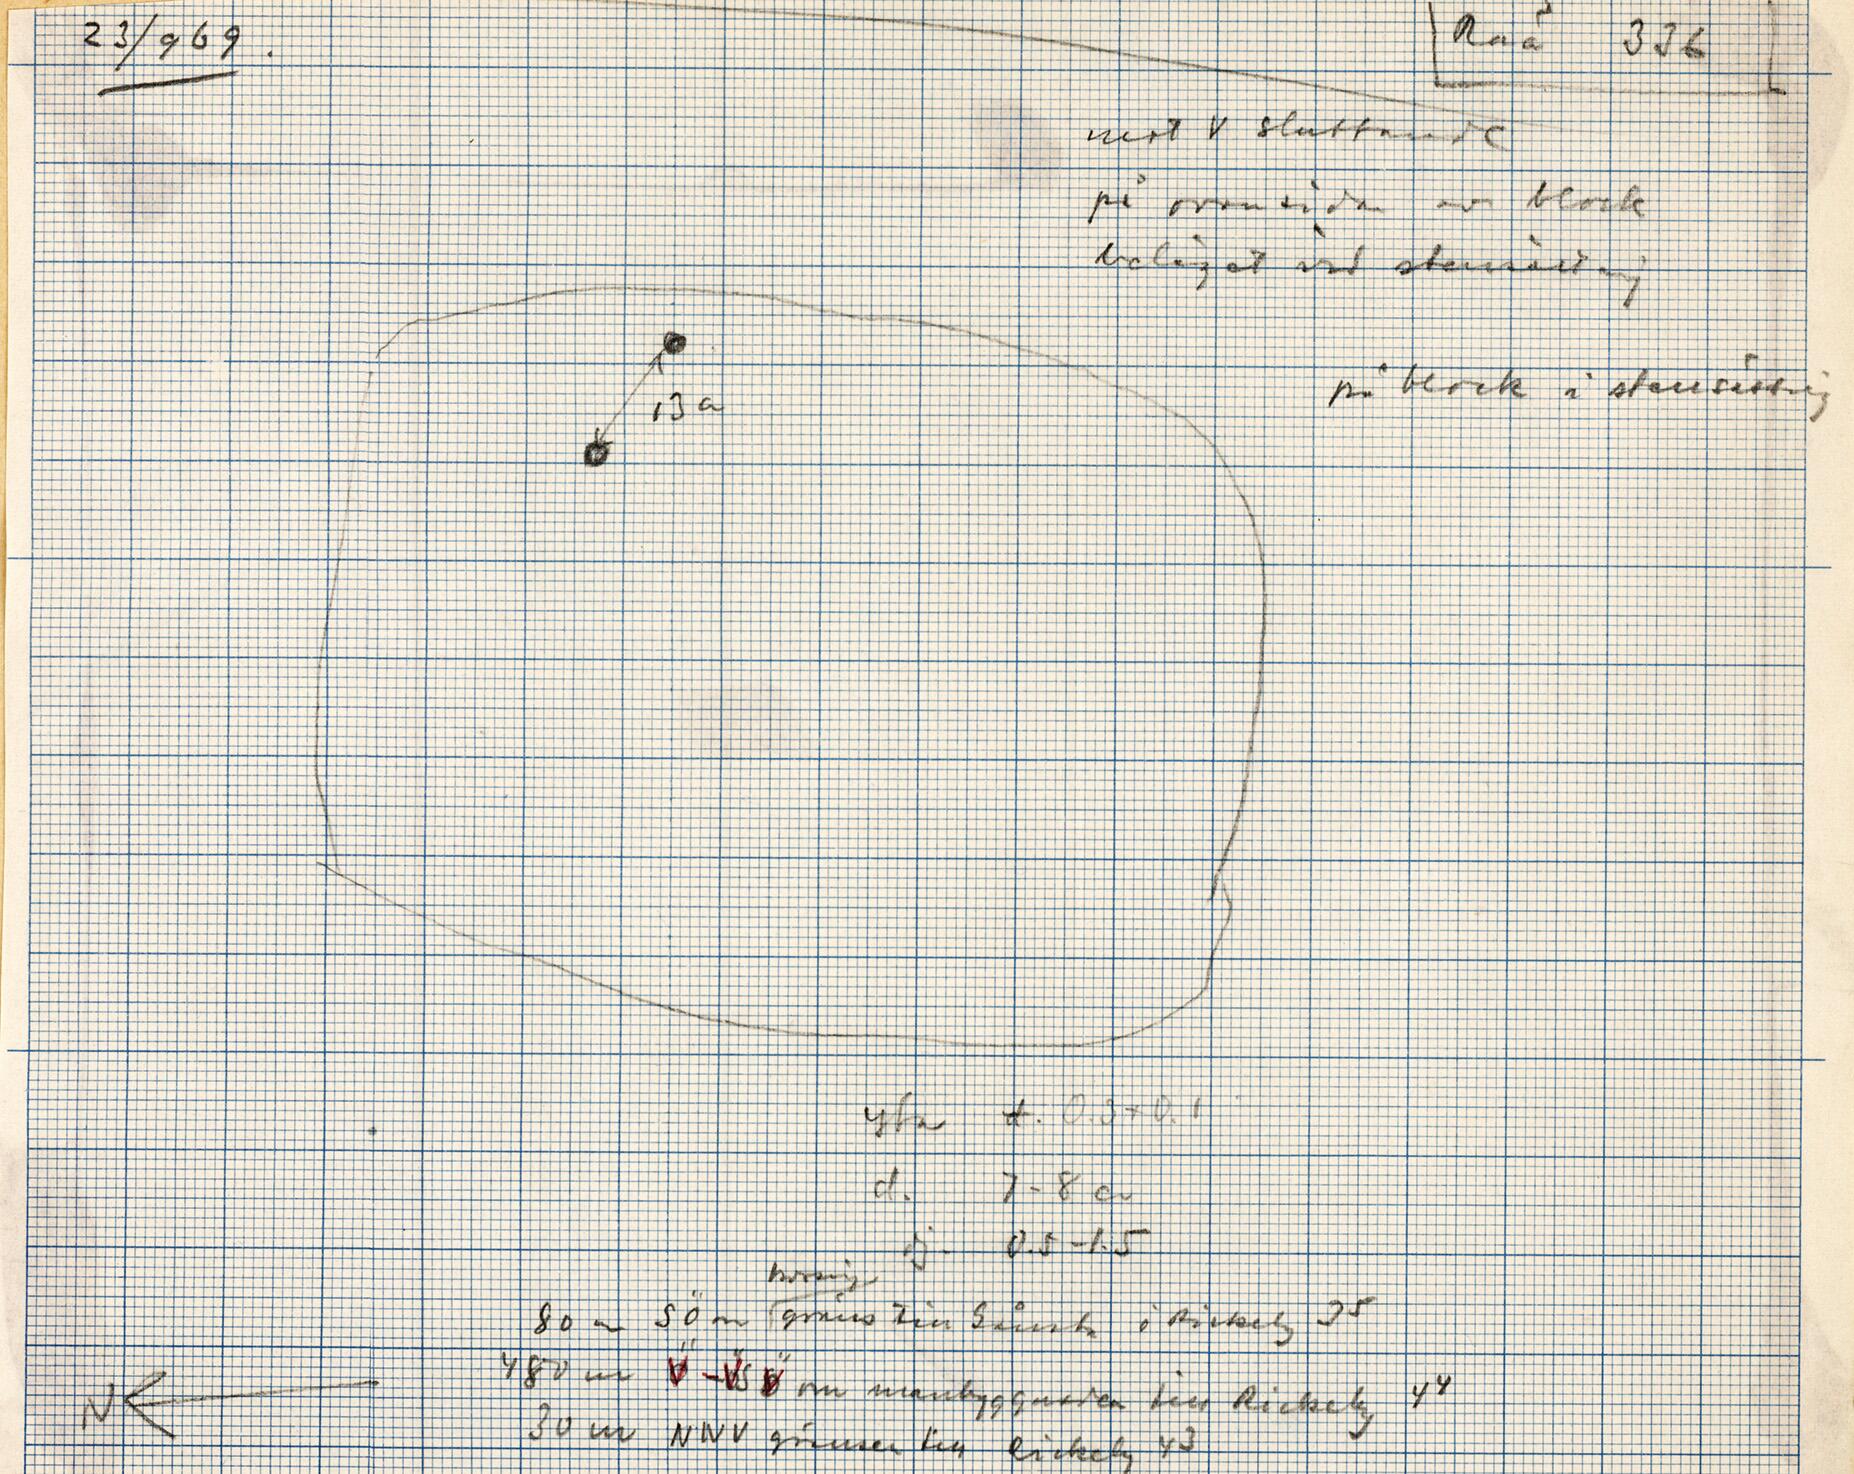 23/9 69.
Raä 336
mot V sluttande
på ovansidan av block
beläget vid stensättning
på block i stensättning
13 a
yta 0.3 + 0.1
d. 7-8 cm
dj. 0.5-1.5
80 m SÖ om gräns till i Rickeby 35
480 m V-VSV om manbyggnaden till Rickeby 44
30 m NNV gränsen till Rickeby 43
N